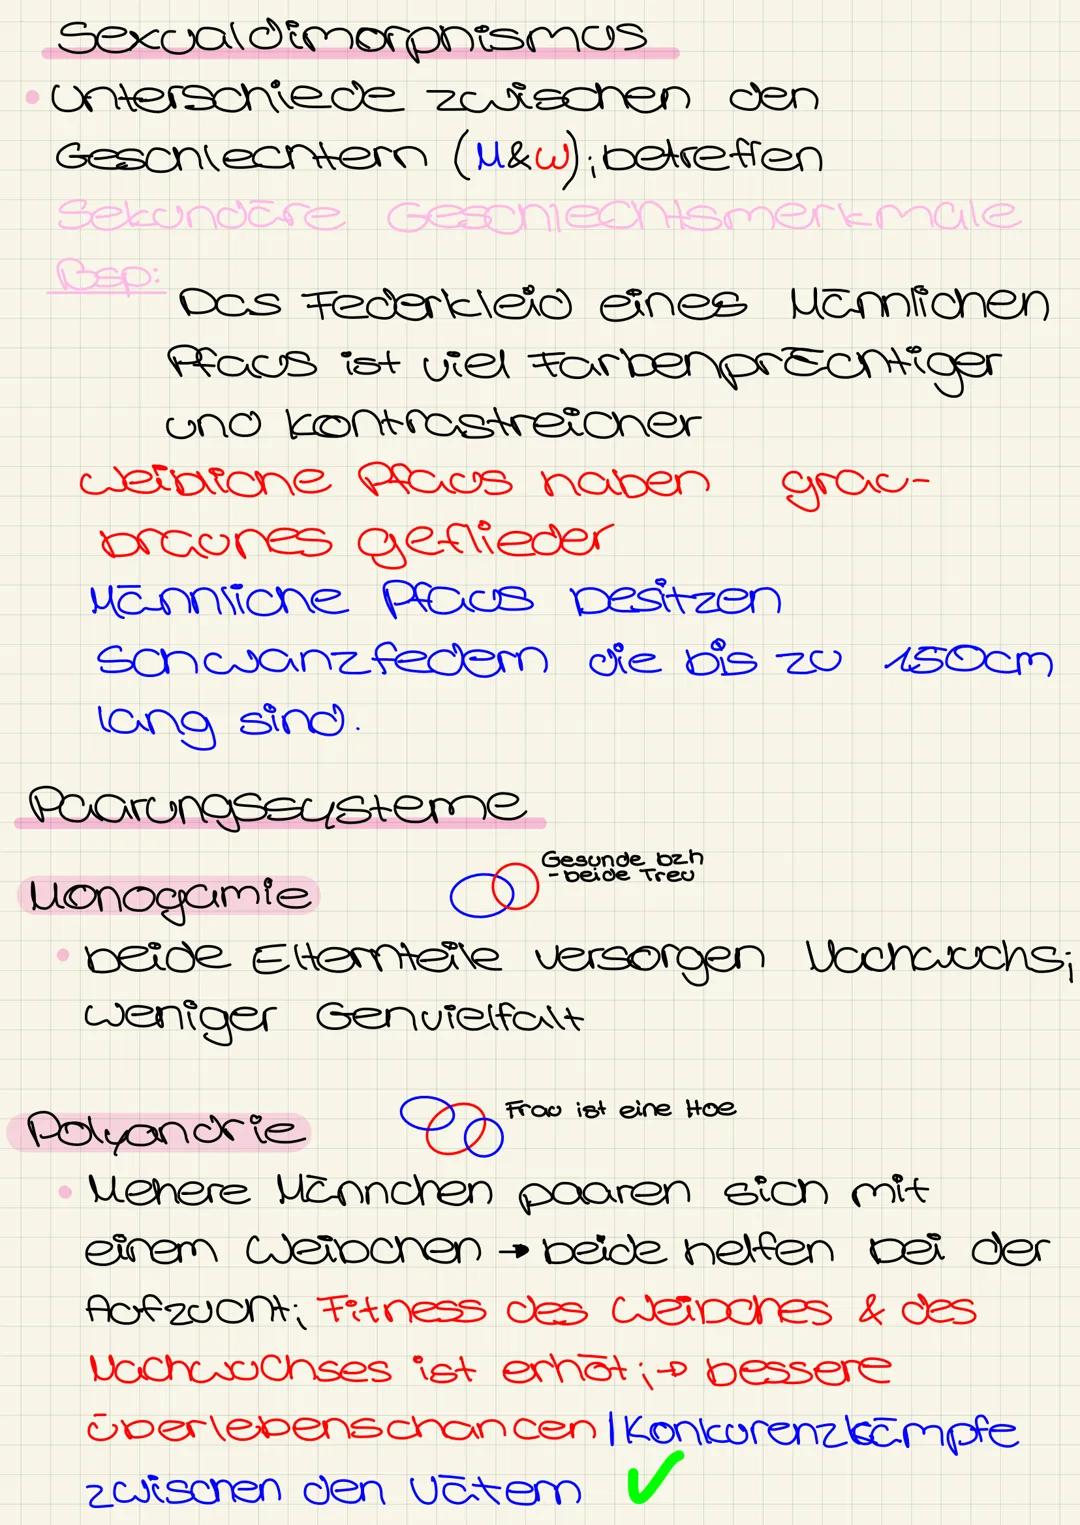 Sexualdimorphismus
• unterschiede zwischen den
Geschlechtern (M&W); betreffen
Sekundäre Geschlechtsmerkmale
Bsp:
Das Federkleid eines Männlichen
Pfaus ist viel Farbenprächtiger
und kontrastreicher
weibliche Pfaus haben grau-
braunes geflieder
Männliche Pfaus besitzen
Schwanzfedern die bis zu 150cm
lang sind.
Paarungssysteme
Gesunde bzh
- beide Treu
Monogamie
• beide Elternteile versorgen Nachwuchs;
weniger Genvielfalt
Polyandrie
Frau ist eine Hoe
• Mehere Männchen paaren sich mit
einem Weibchen → beide helfen bei der
Aufzucht; Fitness des Weibches & des
Nachwuchses ist erhöt; → bessere
überlebenschancen | Konkurenzkämpfe
zwischen den Vätern ✓